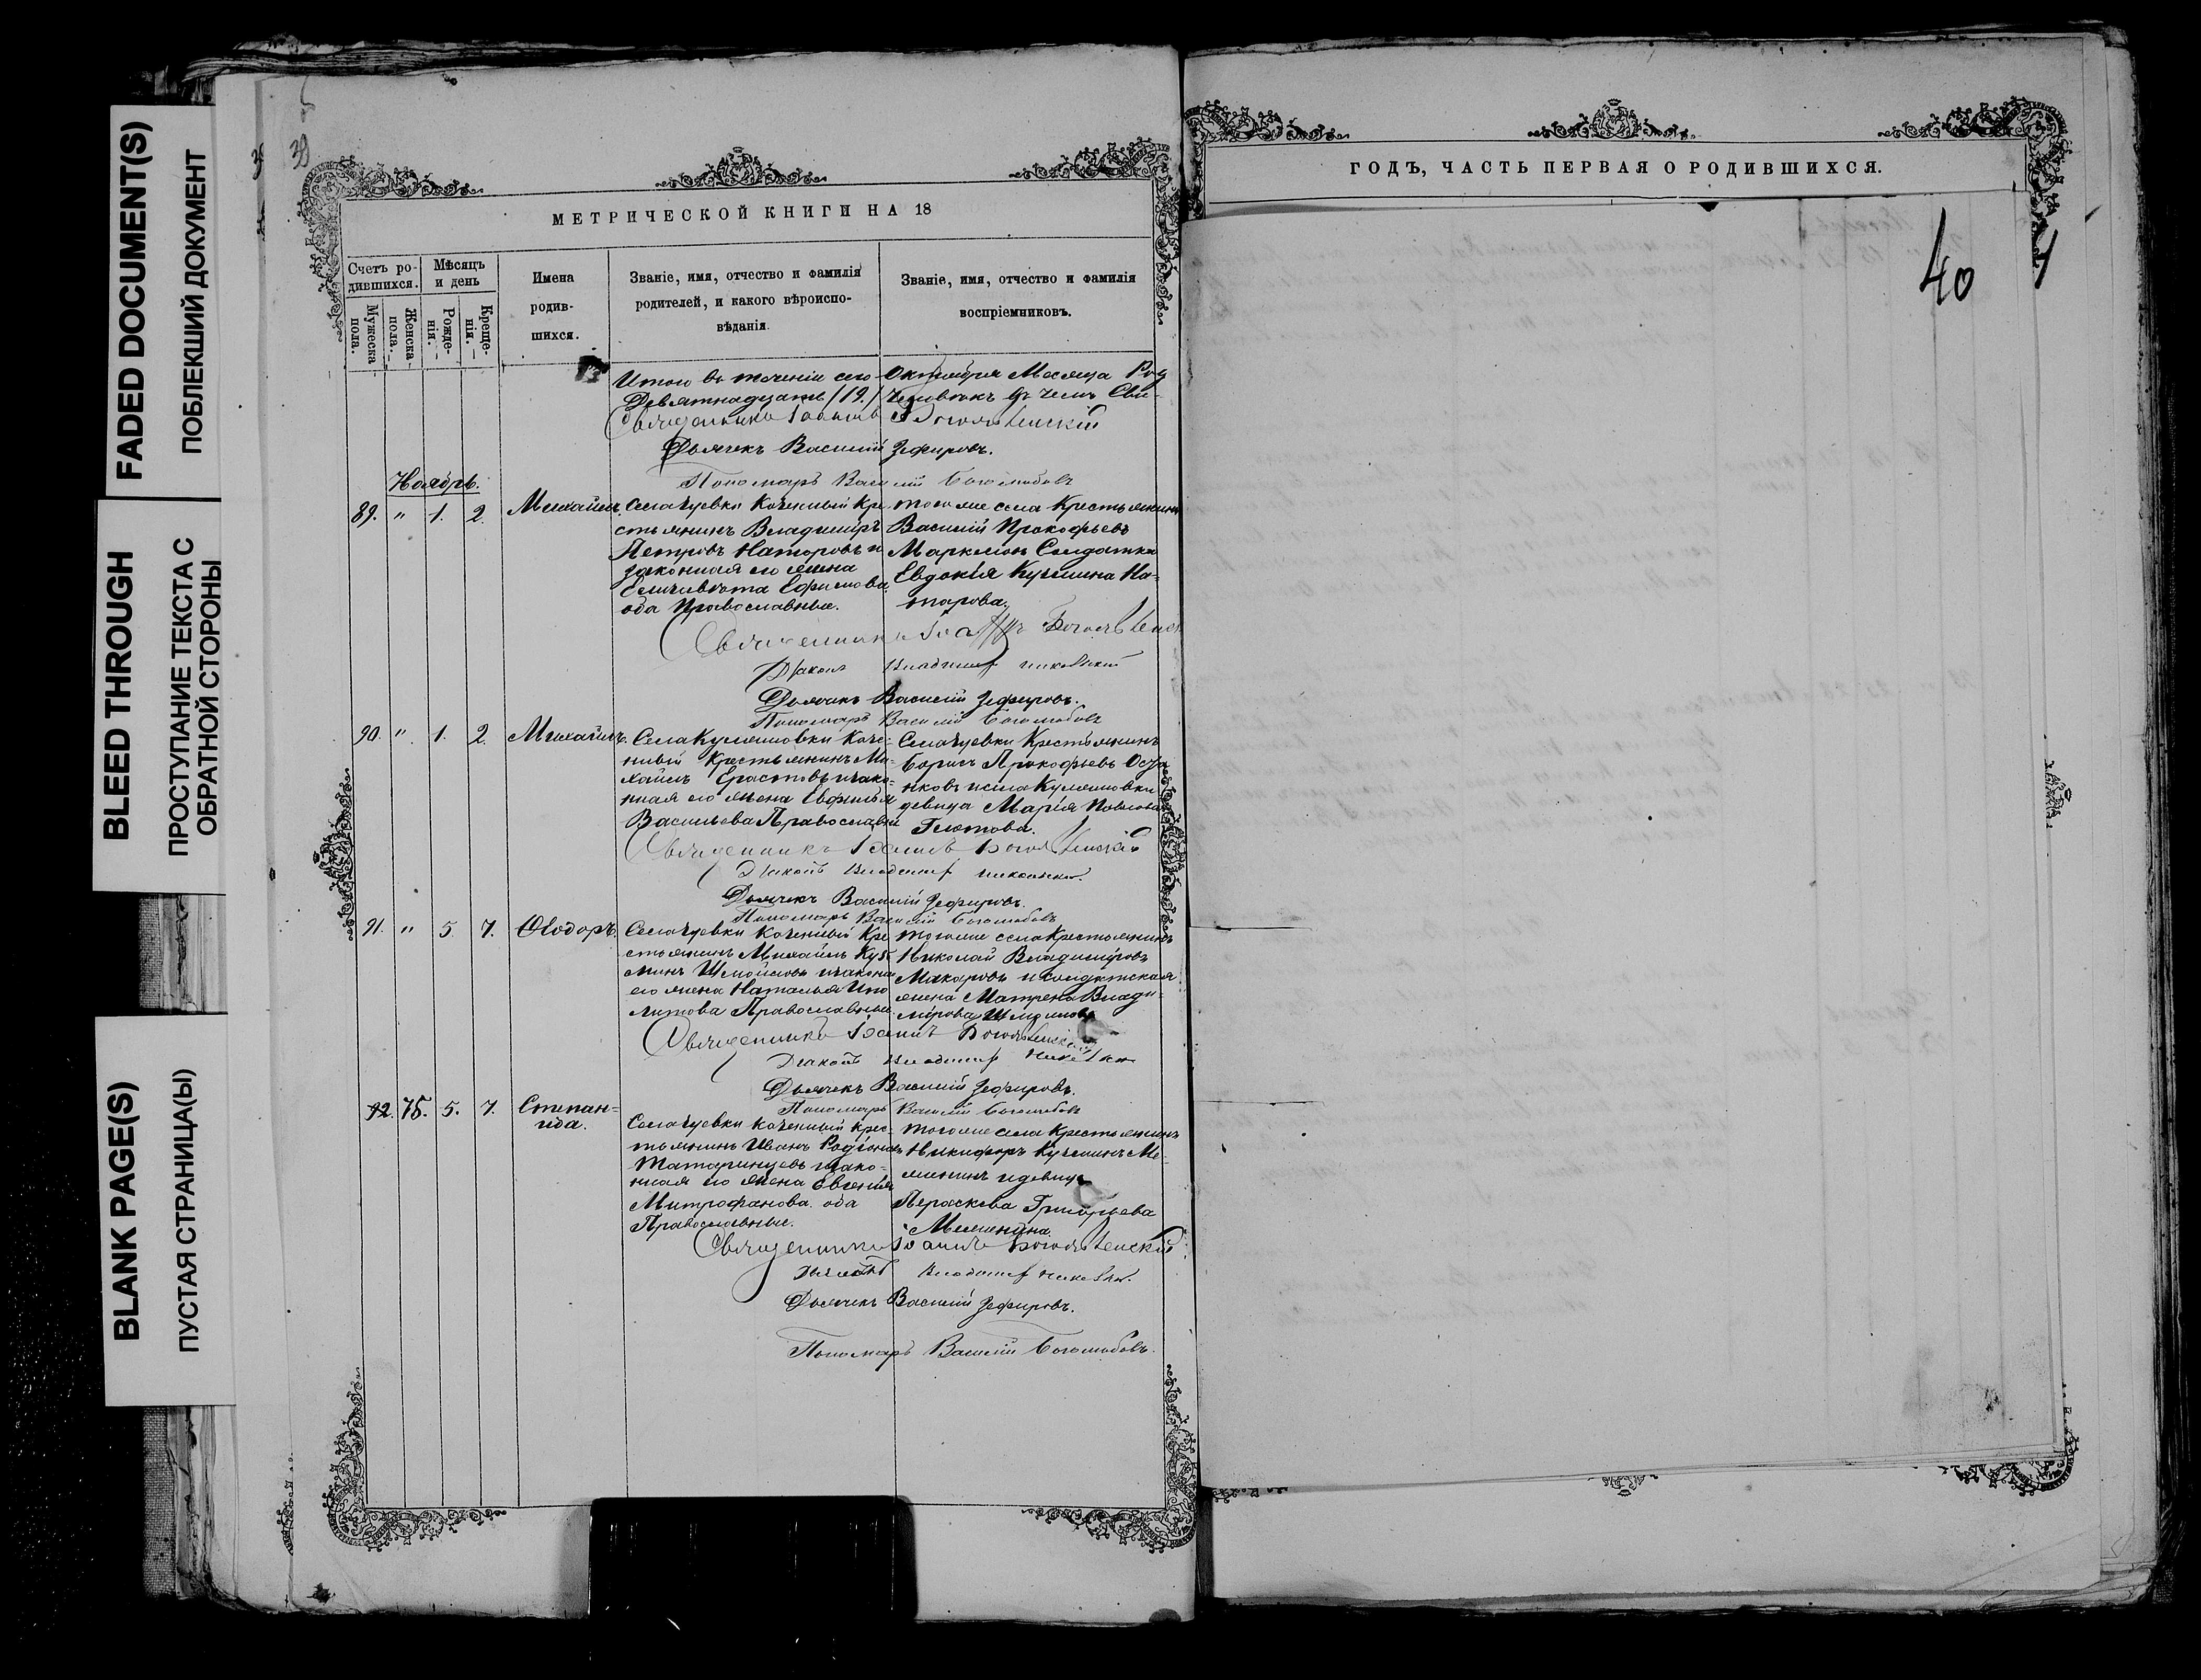 FADED DOCUMENT(S)
ПОБЛЕКШИЙ ДОКУМЕНТ
BLEED THROUGH
ПРОСТУПАНИЕ ТЕКСТА С
ОБРАТНОЙ СТОРОНЫ
BLANK PAGE(S)
ПУСТАЯ СТРАНИЦА(Ы)
39
МЕТРИЧЕСКОЙ КНИГИ НА 18
Счетъ ро-
дившихся.
Мужеска
пола.
Женска-
пола.
Мѣсяцъ
и день
Рожде-
нія.
Креще-
нія.
Имена
родив-
шихся.
Званіе, имя, отчество и фамилія
родителей, и какого вѣроиспо-
вѣданія.
Званіе, имя, отчество и фамилія
воспріемниковъ.
Итого въ теченіи сего Октября Месяца
Девятнадцать /19./ Человѣкъ въ чемъ Сви-
Священникъ Іоаннъ Богоявленскій
Дьячекъ Василій Зефировъ.
Пономарь Василій Боголюбовъ
Ноябрь.
89. " 1. 2. Михаилъ.
Села Чуевки Казенный Кре-
стьянинъ Владиміръ
Петровъ Натаровъ и
законная его жена
Елисавета Ефимова
оба Православные.
того же села Крестьянинъ
Василій Прокофьевъ
Солдатка
Евдокія Кузмина На-
тарова.
Священникъ Іоаннъ Богоявленск
Діаконъ Владимір
Дьячекъ Василій Зефировъ.
Пономарь Василій Боголюбовъ
90. " 1. 2. Михаилъ.
Села Казе-
нный Крестьянинъ Ми-
хаилъ Ерастовъ и зако-
нная его жена Евфимія
Васильева Православные
Села Чуевки Крестьянинъ
Борисъ Прокофьевъ
девица Марія Павлова
Священникъ Іоаннъ Богоявленскій
Діаконъ Владимір
Дьячекъ Василій Зефировъ.
Пономарь Василій Боголюбовъ
91. " 5. 7. Ѳеодоръ.
Села Чуевки Казенный Кре
стьянинъ Михаилъ Кузь
минъ и законная
его жена Наталья Ипо
литова Православные.
того же села Крестьянинъ
Николай Владиміровъ
Макаровъ и солдатская
жена Матрена Влади-
мірова
Священникъ Іоаннъ Богоявленскій
Діаконъ Владимір
Дьячекъ Василій Зефировъ.
Пономарь Василій Боголюбовъ
92. 75. 5. 7. Степан-
ида.
Села Чуевки Казенный Крес-
тьянинъ Иванъ Родіоновъ
Татаринцевъ и зако-
нная его жена Евгенія
Митрофанова оба
Православные.
того же села Крестьянинъ
Никифоръ Кузминъ Ме-
и девица
Параскева Григорьева
Священникъ Іоаннъ Богоявленскій
Діаконъ Владимір
Дьячекъ Василій Зефировъ.
Пономарь Василій Боголюбовъ.
ГОДЪ, ЧАСТЬ ПЕРВАЯ О РОДИВШИХСЯ.
40